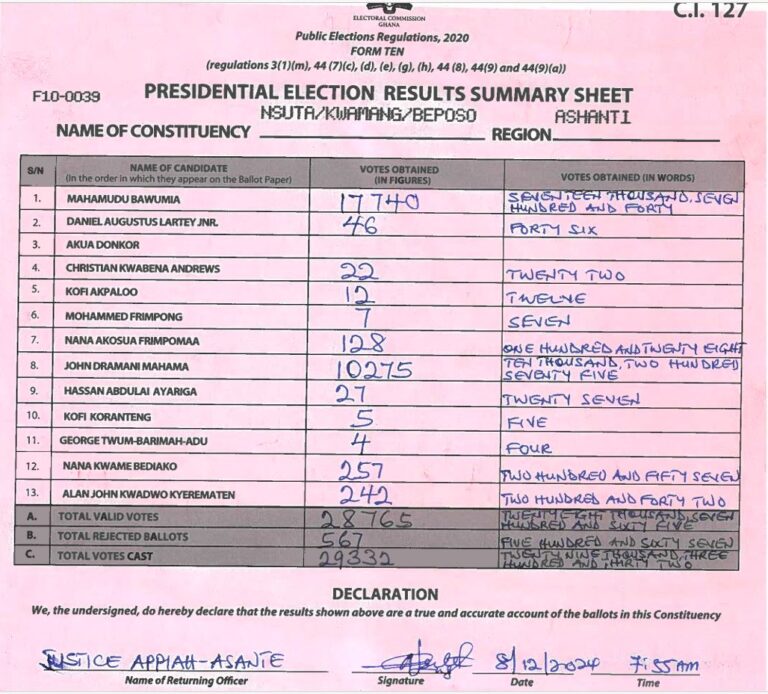 C.I. 127
ELECTORAL COMMISSION
GHANA
Public Elections Regulations, 2020
FORM TEN
(regulations 3(1)(m), 44 (7)(c), (d), (e), (g), (h), 44 (8), 44(9) and 44(9)(a))
F10-0039 PRESIDENTIAL ELECTION RESULTS SUMMARY SHEET
NSUTA/KWAMANG/BEPOSO ASHANTI
NAME OF CONSTITUENCY REGION
S/N NAME OF CANDIDATE VOTES OBTAINED VOTES OBTAINED (IN WORDS)
(In the order in which they appear on the Ballot Paper) (IN FIGURES)
1. MAHAMUDU BAWUMIA 17740 SEVENTEEN THOUSAND, SEVEN
HUNDRED AND FORTY
2. DANIEL AUGUSTUS LARTEY JNR. 46 FORTY SIX
3. AKUA DONKOR
4. CHRISTIAN KWABENA ANDREWS 22 TWENTY TWO
5. KOFI AKPALOO 12 TWELVE
6. MOHAMMED FRIMPONG 7 SEVEN
7. NANA AKOSUA FRIMPOMAA 128 ONE HUNDRED AND TWENTY EIGHT
8. JOHN DRAMANI MAHAMA 10275 TEN THOUSAND, TWO HUNDRED
SEVENTY FIVE
9. HASSAN ABDULAI AYARIGA 27 TWENTY SEVEN
10. KOFI KORANTENG 5 FIVE
11. GEORGE TWUM-BARIMAH-ADU 4 FOUR
12. NANA KWAME BEDIAKO 257 TWO HUNDRED AND FIFTY SEVEN
13. ALAN JOHN KWADWO KYEREMATEN 242 TWO HUNDRED AND FORTY TWO
A. TOTAL VALID VOTES 28765 TWENTY EIGHT THOUSAND, SEVEN
HUNDRED AND SIXTY FIVE
B. TOTAL REJECTED BALLOTS 567 FIVE HUNDRED AND SIXTY SEVEN
C. TOTAL VOTES CAST 29332 TWENTY NINE THOUSAND, THREE
HUNDRED AND THIRTY TWO
DECLARATION
We, the undersigned, do hereby declare that the results shown above are a true and accurate account of the ballots in this Constituency
JUSTICE APPIAH-ASANTE 8/12/2024 7:55AM
Name of Returning Officer Signature Date Time